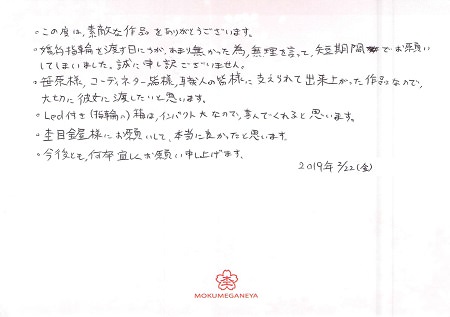 ・この度は、素敵な作品をありがとうございます。
・婚約指輪を渡す日にちが、あまり無かった為、無理を言って、短期間でお願い
してしまいました。誠に申し訳ございません。
・笹原様、コーディネーター皆様、職人の皆様に支えられて出来上がった作品なので、
大切に彼女に渡したいと思います。
・Led付き(指輪の)箱は、インパクト大なので、喜んでくれると思います。
・杢目金屋様にお願いして、本当に良かったと思います。
・今後とも、何卒宜しくお願い申し上げます。
2019年 2/22(金)
MOKUMEGANEYA